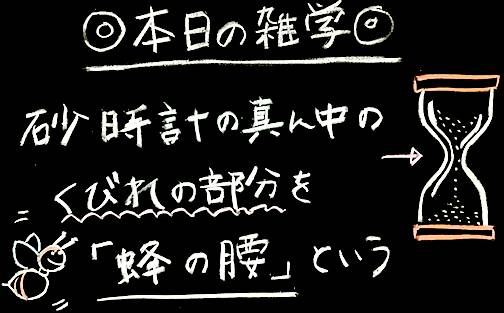 ◎本日の雑学◎
砂時計の真ん中の
くびれの部分を
「蜂の腰」という